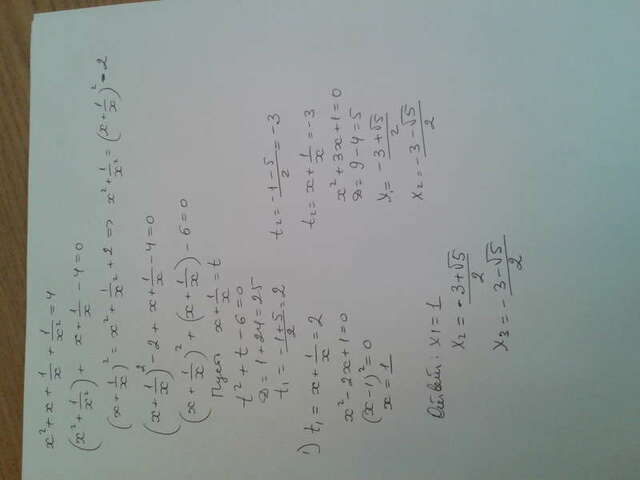 x² + x + 1/x + 1/x² = 4
(x² + 1/x²) + x + 1/x - 4 = 0
(x + 1/x)² = x² + 1/x² + 2 ⇒ x² + 1/x² = (x + 1/x)² - 2
(x + 1/x)² - 2 + x + 1/x - 4 = 0
(x + 1/x)² + (x + 1/x) - 6 = 0
Пусть x + 1/x = t
t² + t - 6 = 0
D = 1 + 24 = 25
t₁ = (-1+5)/2 = 2
t₂ = (-1-5)/2 = -3
1) t₁ = x + 1/x = 2
x² - 2x + 1 = 0
(x-1)² = 0
x = 1
t₂ = x + 1/x = -3
x² + 3x + 1 = 0
D = 9 - 4 = 5
x₁ = (-3+√5)/2
x₂ = (-3-√5)/2
Ответ: x1 = 1
x₂ = (-3+√5)/2
x₃ = (-3-√5)/2